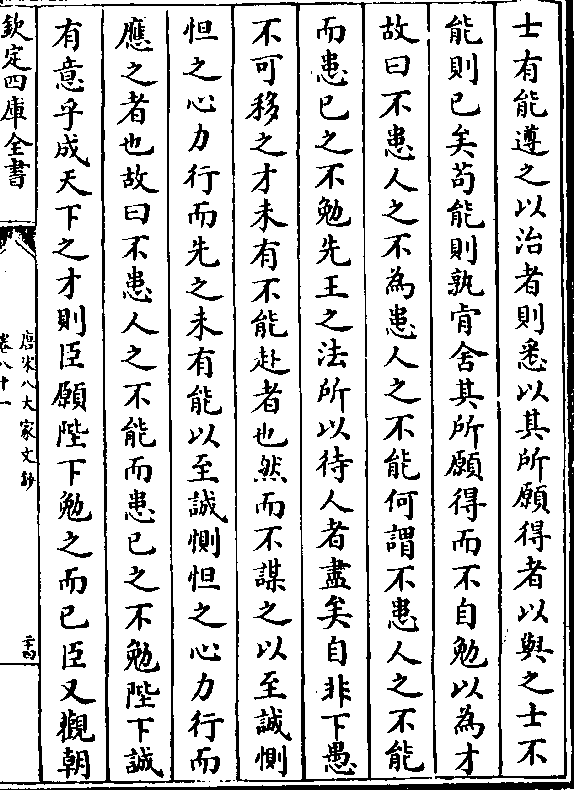 士有能遵之以治者則悉以其所願得者以與之士不
能則已矣苟能則孰肯舍其所願得而不自勉以為才
故曰不患人之不為患人之不能何謂不患人之不能
而患已之不勉先王之法所以待人者盡矣自非下愚
不可移之才未有不能赴者也然而不謀之以至誠惻
怛之心力行而先之未有能以至誠惻怛之心力行而
應之者也故曰不患人之不能而患已之不勉陛下誠
有意乎成天下之才則臣願陛下勉之而已臣又觀朝
欽定四庫全書
唐宋八大家文鈔
卷八十一
二十四